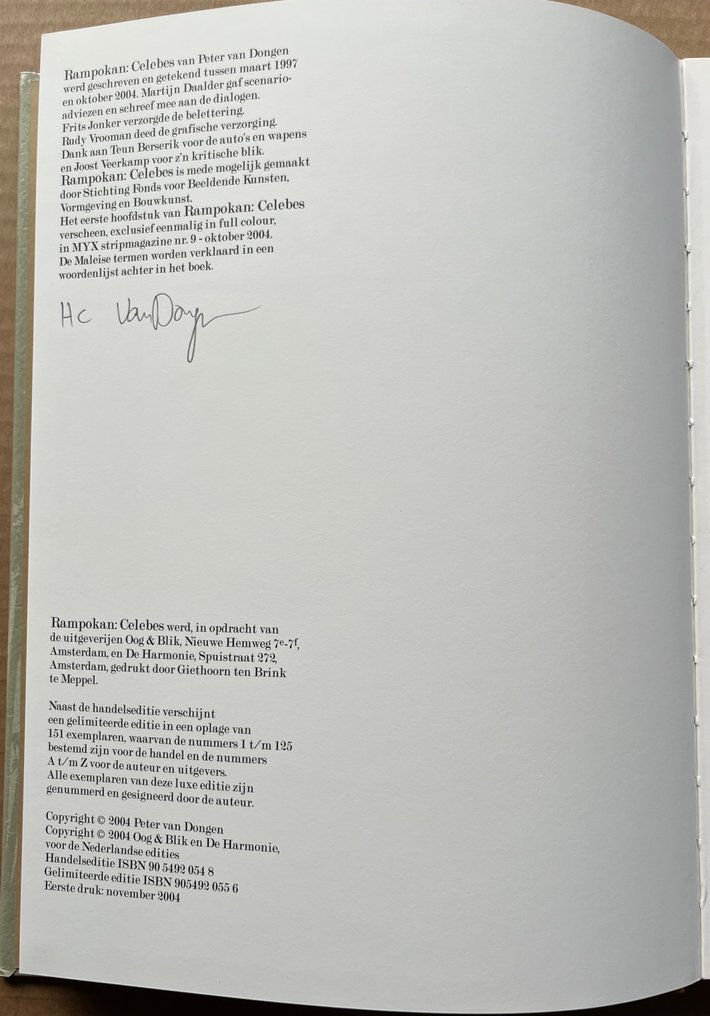 Rampokan: Celebes van Peter van Dongen
werd geschreven en getekend tussen maart 1997
en oktober 2004. Martijn Daalder gaf scenario-
adviezen en schreef mee aan de dialogen.
Frits Jonker verzorgde de belettering.
Rudy Vrooman deed de grafische verzorging.
Dank aan Teun Berserik voor de auto's en wapens
en Joost Veerkamp voor z'n kritische blik.
Rampokan: Celebes is mede mogelijk gemaakt
door Stichting Fonds voor Beeldende Kunsten,
Vormgeving en Bouwkunst.
Het eerste hoofdstuk van Rampokan: Celebes
verscheen, exclusief eenmalig in full colour,
in MYX stripmagazine nr. 9 - oktober 2004.
De Maleise termen worden verklaard in een
woordenlijst achter in het boek.
HC VanDongen
Rampokan: Celebes werd, in opdracht van
de uitgeverijen Oog & Blik, Nieuwe Hemweg 7e-7f,
Amsterdam, en De Harmonie, Spuistraat 272,
Amsterdam, gedrukt door Giethoorn ten Brink
te Meppel.
Naast de handelseditie verschijnt
een gelimiteerde editie in een oplage van
151 exemplaren, waarvan de nummers 1 t/m 125
bestemd zijn voor de handel en de nummers
A t/m Z voor de auteur en uitgevers.
Alle exemplaren van deze luxe editie zijn
genummerd en gesigneerd door de auteur.
Copyright © 2004 Peter van Dongen
Copyright © 2004 Oog & Blik en De Harmonie,
voor de Nederlandse edities
Handelseditie ISBN 90 5492 054 8
Gelimiteerde editie ISBN 905492 055 6
Eerste druk: november 2004